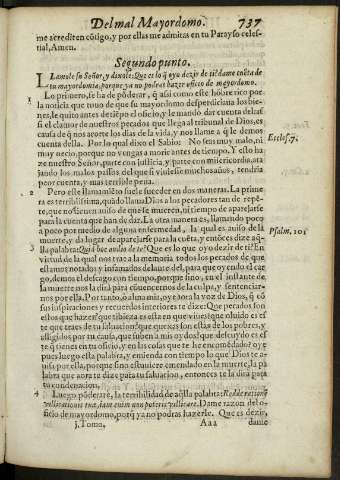 Del mal Mayordomo. 737
me acrediten cõtigo, y por ellas me admitas en tu Parayso celes-
tial, Amen.
Segundo punto.
LLamole su Señor, y dixole: Que es lo q̃ oyo dezir de ti? dame cuẽta de
tu mayordomia, porque ya no podras hazer oficio de mayordomo.
Lo primero, se ha de põderar, q̃ assi como este hõbre rico por
la noticia que tuuo de que su mayordomo desperdiciaua los bie-
nes, le quito antes de tiẽpo el oficio, y le mando dar cuenta delas;
si el clamor de nuestros pecados que llega al tribunal de Dios, es
causa de q̃ nos acorte los dias de la vida, y nos llame a q̃ le demos
cuenta della. Por lo qual dixo el Sabio: No seas muy malo, ni
Eccles. 7.
muy necio, porque no vengas a morir antes de tiempo. Y esto ha
ze nuestro Señor, parte con justicia, y parte con misericordia, ata
jando los malos passos del que si viuiesse mucho años, tendria
peor cuenta, y mas terrible pena.
2 Pero este llamamiẽto suele suceder en dos maneras. La prime
ra es terribilissima, quãdo llama Dios a los pecadores tan de repẽ-
te, que no tienen auiso de que se mueren, ni tiempo de aparejarse
para la cuenta que han de dar. La otra manera es, llamando poco
a poco por medio de alguna enfermedad, la qual es auiso de la
muerte, y da lugar de aparejarse para la cuẽta, y entõces dize aq̃-
Psalm. 101
3 lla palabra: Quid hoc audio de te? Que es lo que oyo dezir de ti? En
virtud de la qual nos trae a la memoria todos los pecados de que
estamos notados y infamados delante del, para que oyendo el car
go, demos el descargo con tiempo, porque sino, en el instante de
la muerte nos la dirà para cõuencernos de la culpa, y sentenciar-
nos por ella. Por tanto, ò alma mia, oye aora la voz de Dios, q̃ cõ
sus inspiraciones y recuerdos interiores te dize: Que pecados son
estos que hazes? que tibieza es esta en que viues? que oluido es es
te que traes de tu saluacion? que quexas son estas de los pobres, y
afligidos por tu causa, que suben à mis oydos? que descuydo es es
te q̃ tienes en tu oficio, y en las cosas que te he encomẽdado? oye
pues luego esta palabra, y emienda con tiempo lo que Dios te a-
uisa por ella, porque sino estuuiere emendado en la muerte, la pa
labra que aora te dize para tu saluacion, entonces te la dirà para
tu condenacion.
4 Luego põderaré, la terribilidad de aq̃lla palabra: Redde rationẽ
villicationis tuæ, iam enim non poteris villicare. Dame razon del o-
ficio de mayordomo, porq̃ ya no podras hazerle. Que es dezir,
3. Tomo, Aaa dame